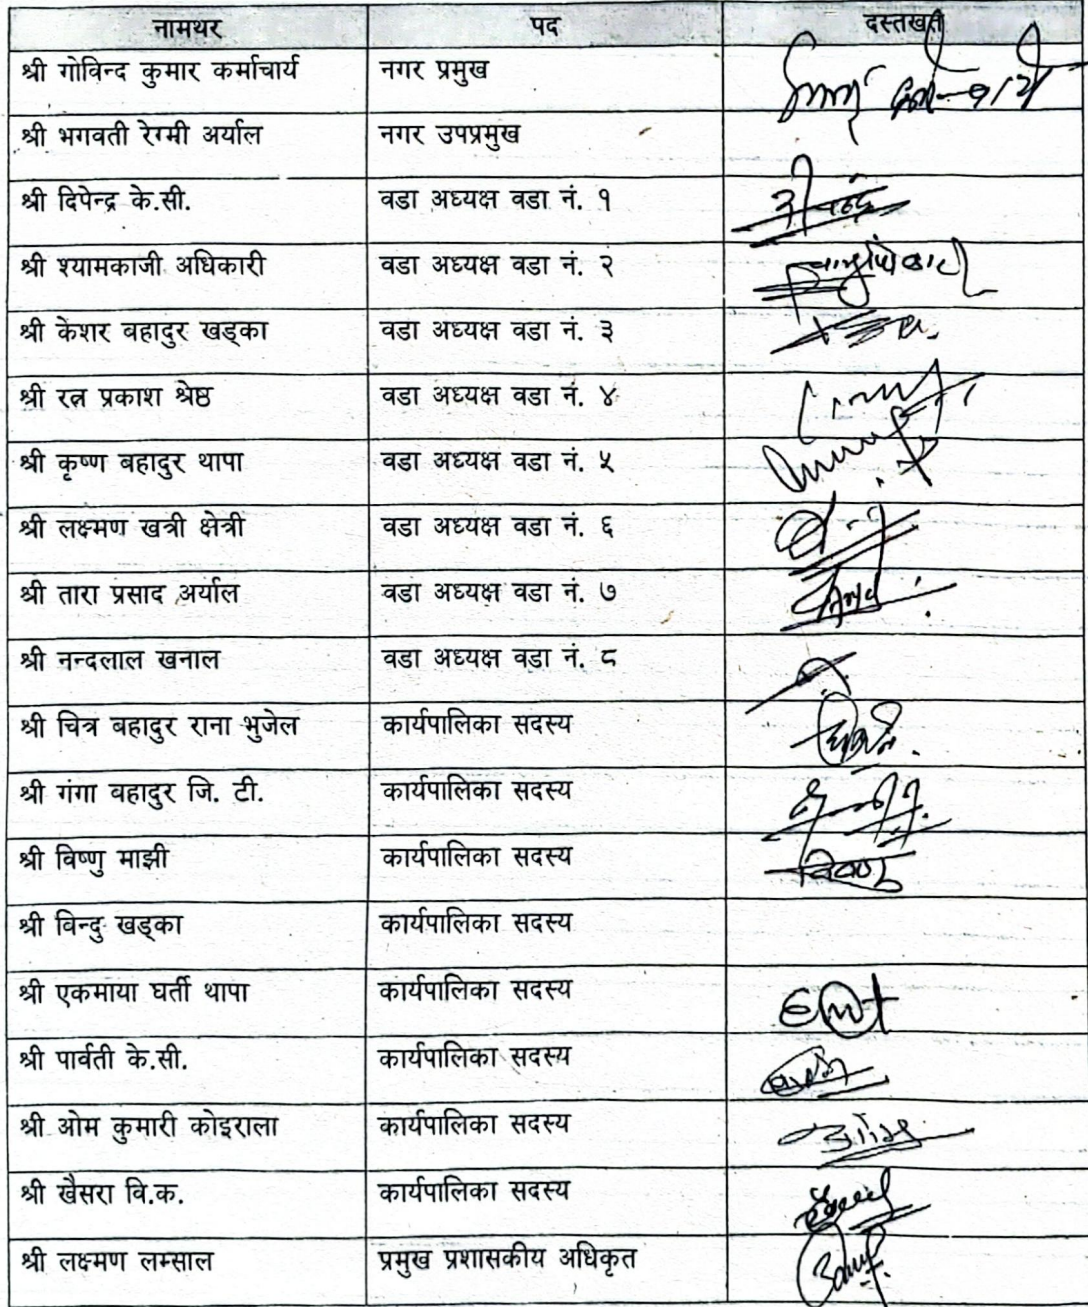 नामथर पद दस्तखत
श्री गोविन्द कुमार कर्माचार्य नगर प्रमुख
श्री भगवती रेग्मी अर्याल नगर उपप्रमुख
श्री दिपेन्द्र के.सी. वडा अध्यक्ष वडा नं. १
श्री श्यामकाजी अधिकारी वडा अध्यक्ष वडा नं. २
श्री केशर बहादुर खड्का वडा अध्यक्ष वडा नं. ३
श्री रत्न प्रकाश श्रेष्ठ वडा अध्यक्ष वडा नं. ४
श्री कृष्ण बहादुर थापा वडा अध्यक्ष वडा नं. ५
श्री लक्ष्मण खत्री क्षेत्री वडा अध्यक्ष वडा नं. ६
श्री तारा प्रसाद अर्याल वडा अध्यक्ष वडा नं. ७
श्री नन्दलाल खनाल वडा अध्यक्ष वडा नं. ८
श्री चित्र बहादुर राना भुजेल कार्यपालिका सदस्य
श्री गंगा बहादुर जि. टी. कार्यपालिका सदस्य
श्री विष्णु माझी कार्यपालिका सदस्य
श्री विन्दु खड्का कार्यपालिका सदस्य
श्री एकमाया घर्ती थापा कार्यपालिका सदस्य
श्री पार्वती के.सी. कार्यपालिका सदस्य
श्री ओम कुमारी कोइराला कार्यपालिका सदस्य
श्री खैसरा वि.क. कार्यपालिका सदस्य
श्री लक्ष्मण लम्साल प्रमुख प्रशासकीय अधिकृत